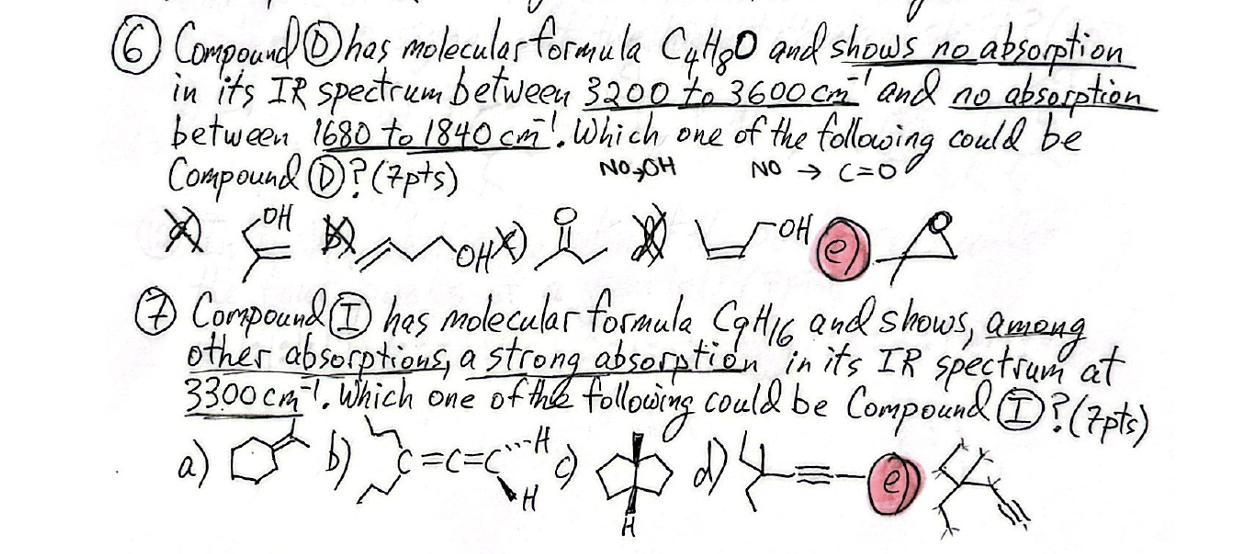 ⑥ Compound Ⓓ has molecular formula C₄H₈O and shows no absorption
in its IR spectrum between 3200 to 3600 cm⁻¹ and no absorption
between 1680 to 1840 cm⁻¹. Which one of the following could be
Compound Ⓓ? (7pts) NO OH NO → C=O
a) OH b) OH c) O d) OH e) O
⑦ Compound Ⓘ has molecular formula C₉H₁₆ and shows, among
other absorptions, a strong absorption in its IR spectrum at
3300 cm⁻¹. Which one of the following could be Compound Ⓘ? (7pts)
a) b) C=C=C H H c) H d) e)